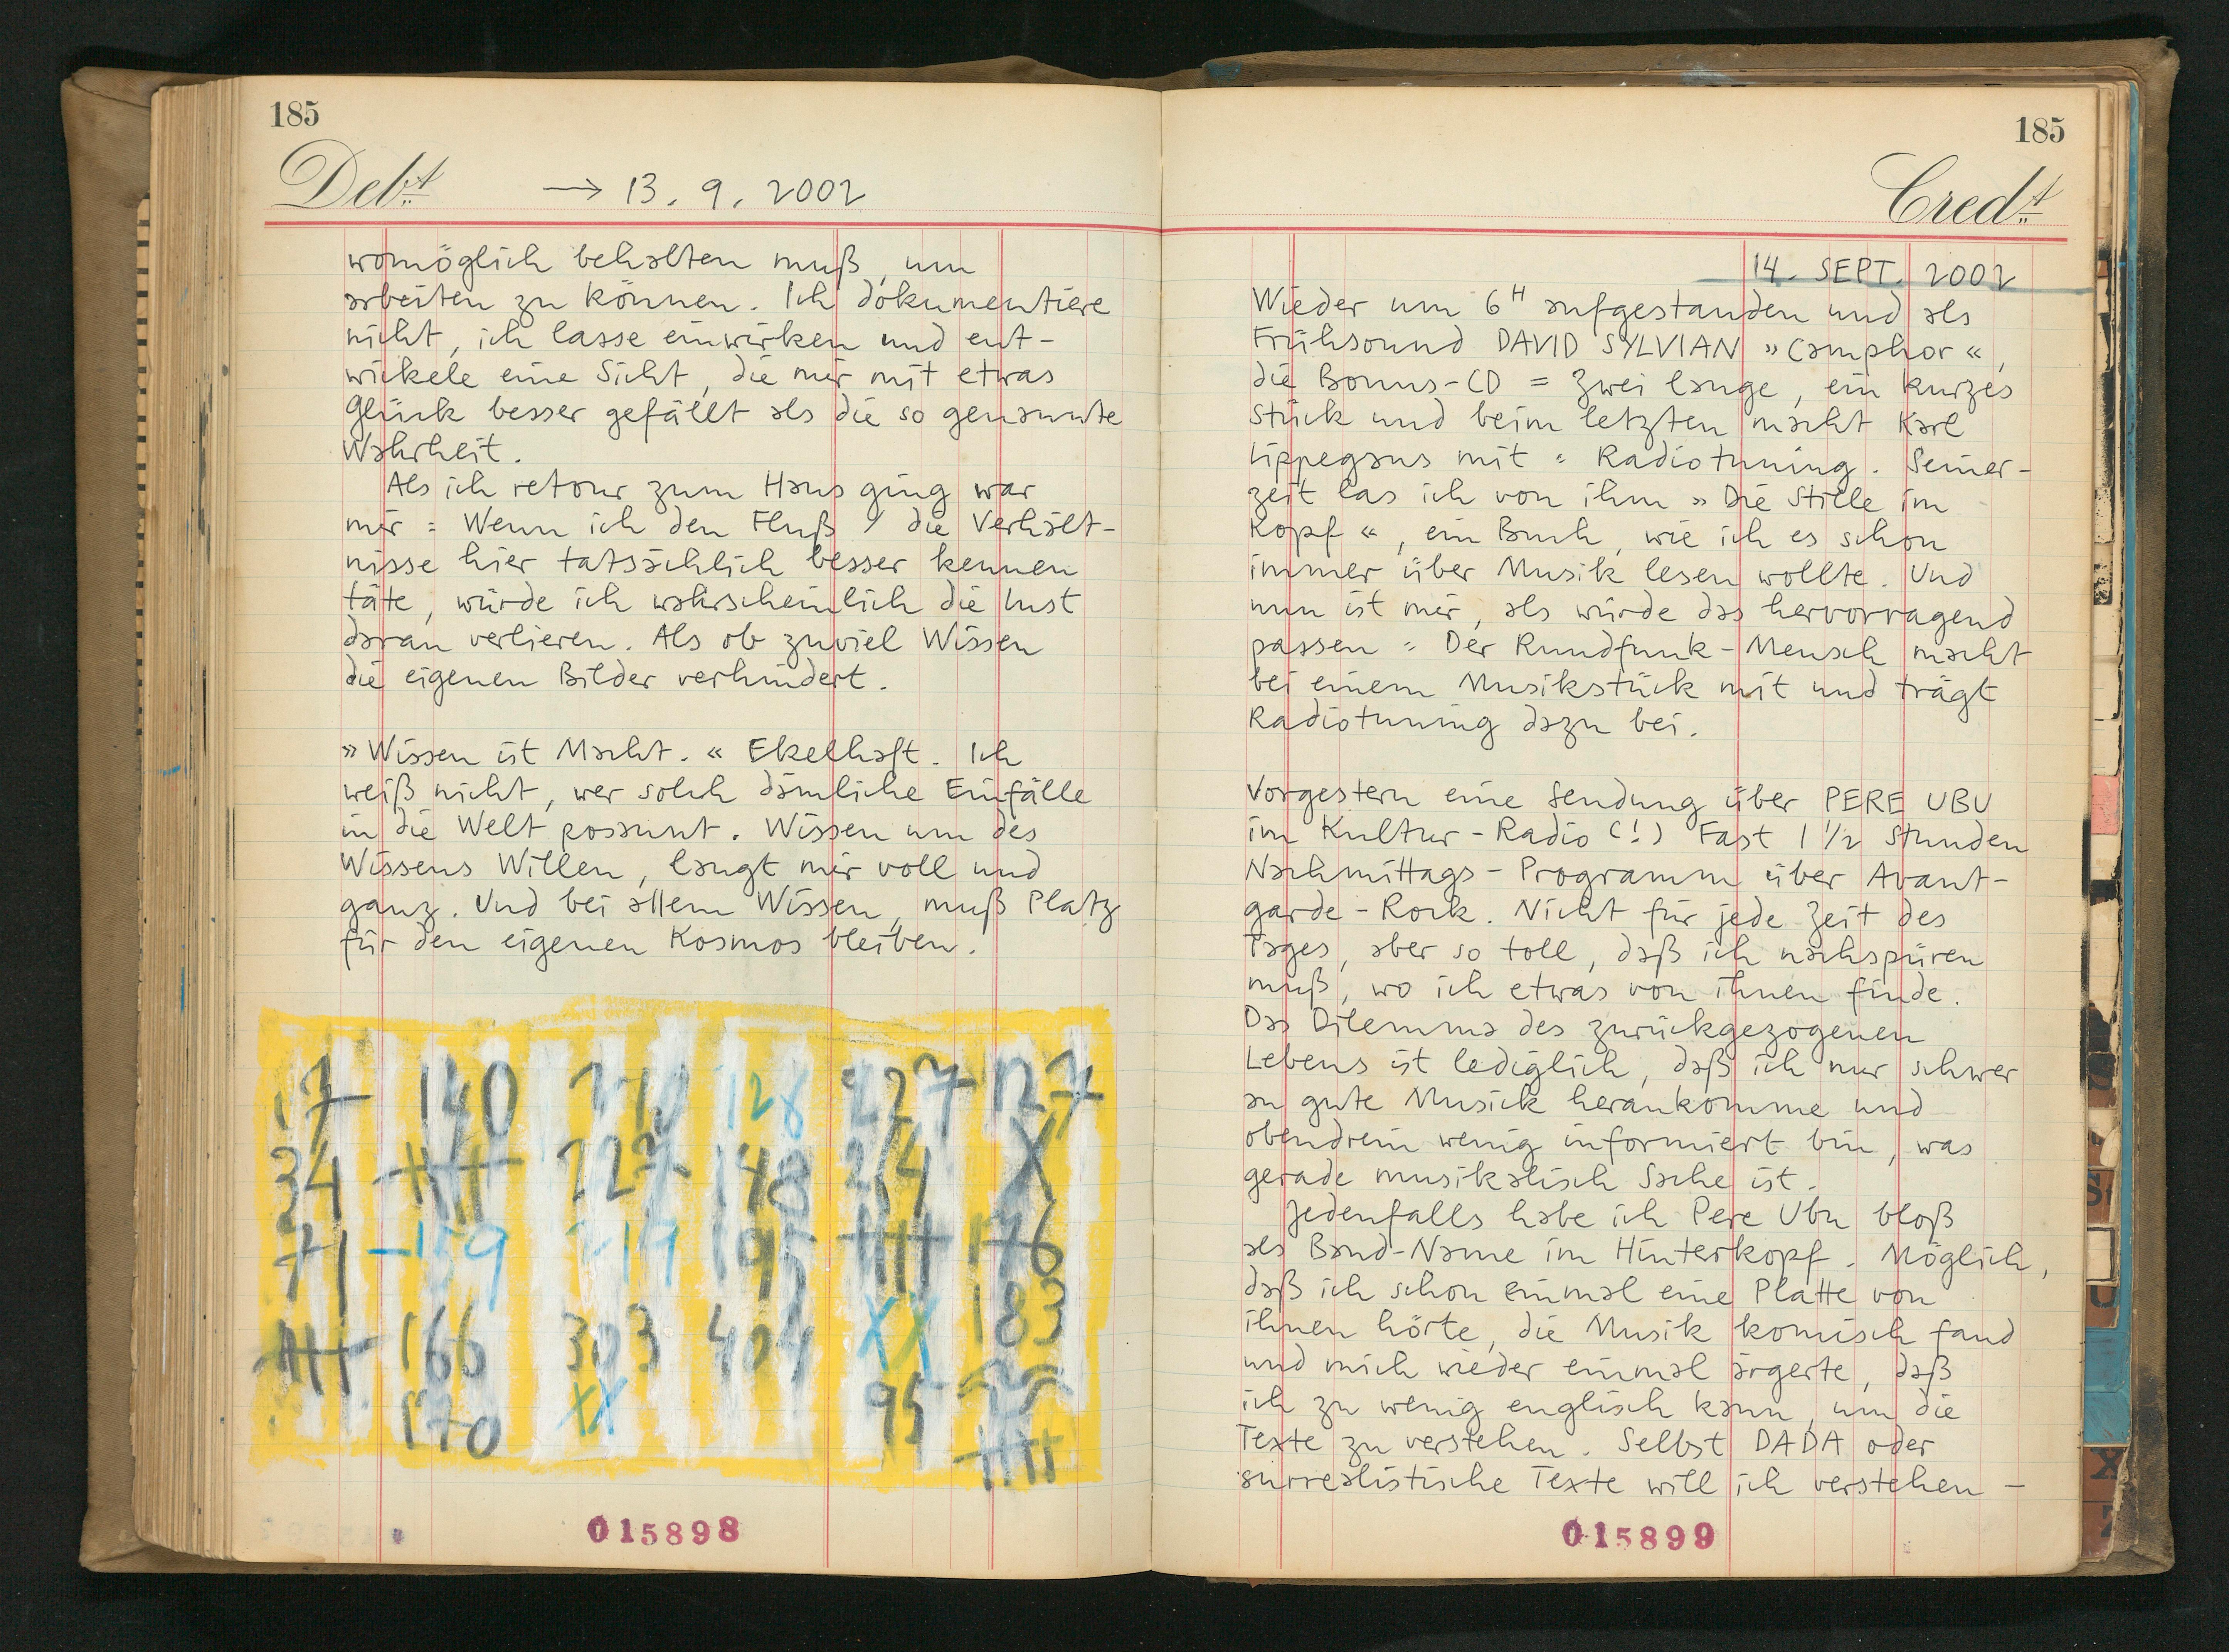 185
Debt
→ 13. 9. 2002
womöglich behalten muß, um
arbeiten zu können. Ich dokumentiere
nicht, ich lasse einwirken und ent-
wickele eine Sicht, die mir mit etwas
Glück besser gefällt als die so genannte
Wahrheit.
Als ich retour zum Haus ging war
mir : Wenn ich den Fluß / die Verhält-
nisse hier tatsächlich besser kennen
täte, würde ich wahrscheinlich die Lust
daran verlieren. Als ob zuviel Wissen
die eigenen Bilder verhindert.
»Wissen ist Macht.« Ekelhaft. Ich
weiß nicht, wer solch dämliche Einfälle
in die Welt posaunt. Wissen um des
Wissens Willen, langt mir voll und
ganz. Und bei allem Wissen, muß Platz
für den eigenen Kosmos bleiben.
17 140 128 227 127
34 227 148 214 X
71 -159 219 195 176
166 303 404 XX 183
170 XX 95
015898
185
Credt
14. SEPT. 2002
Wieder um 6H aufgestanden und als
Frühsound DAVID SYLVIAN »Camphor«,
die Bonus-CD = Zwei lange, ein kurzes
Stück und beim letzten macht Karl
Lippegaus mit : Radiotuning. Seiner-
zeit las ich von ihm »Die Stille im
Kopf«, ein Buch, wie ich es schon
immer über Musik lesen wollte. Und
nun ist mir, als würde das hervorragend
passen : Der Rundfunk-Mensch macht
bei einem Musikstück mit und trägt
Radiotuning dazu bei.
Vorgestern eine Sendung über PERE UBU
im Kultur-Radio (!) Fast 1 1/2 Stunden
Nachmittags-Programm über Avant-
garde-Rock. Nicht für jede Zeit des
Tages, aber so toll, daß ich nachspüren
muß, wo ich etwas von ihnen finde.
Das Dilemma des zurückgezogenen
Lebens ist lediglich, daß ich nur schwer
an gute Musick herankomme und
obendrein wenig informiert bin, was
gerade musikalisch Sache ist.
Jedenfalls habe ich Pere Ubu bloß
als Band-Name im Hinterkopf. Möglich,
daß ich schon einmal eine Platte von
ihnen hörte, die Musik komisch fand
und mich wieder einmal ärgerte, daß
ich zu wenig englisch kann, um die
Texte zu verstehen. Selbst DADA oder
surrealistische Texte will ich verstehen –
015899